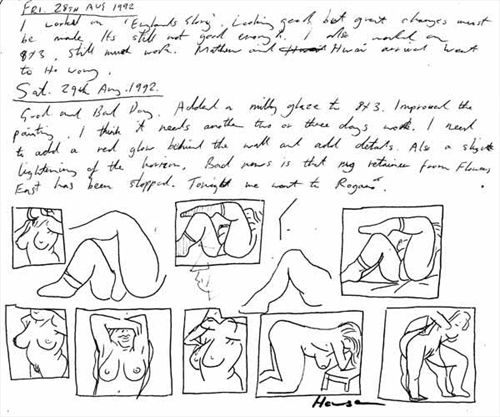 FRI. 28TH AUG 1992
I worked on 'England's Glory'. Looking good, but great changes must
be made. Its still not good enough. I also worked on
8x3. Still much work. Mathew and Hwai arrived went
to Ho Wong.
Sat. 29th Aug. 1992.
Good and Bad Day. Added a milky glaze to 8x3. Improved the
painting. I think it needs another two or three days work. I need
to add a red glow behind the wall and add details. Also a slight
lightening of the horizon. Bad news is that my retainer from Flowers
East has been stopped. Tonight we went to Rogano's.